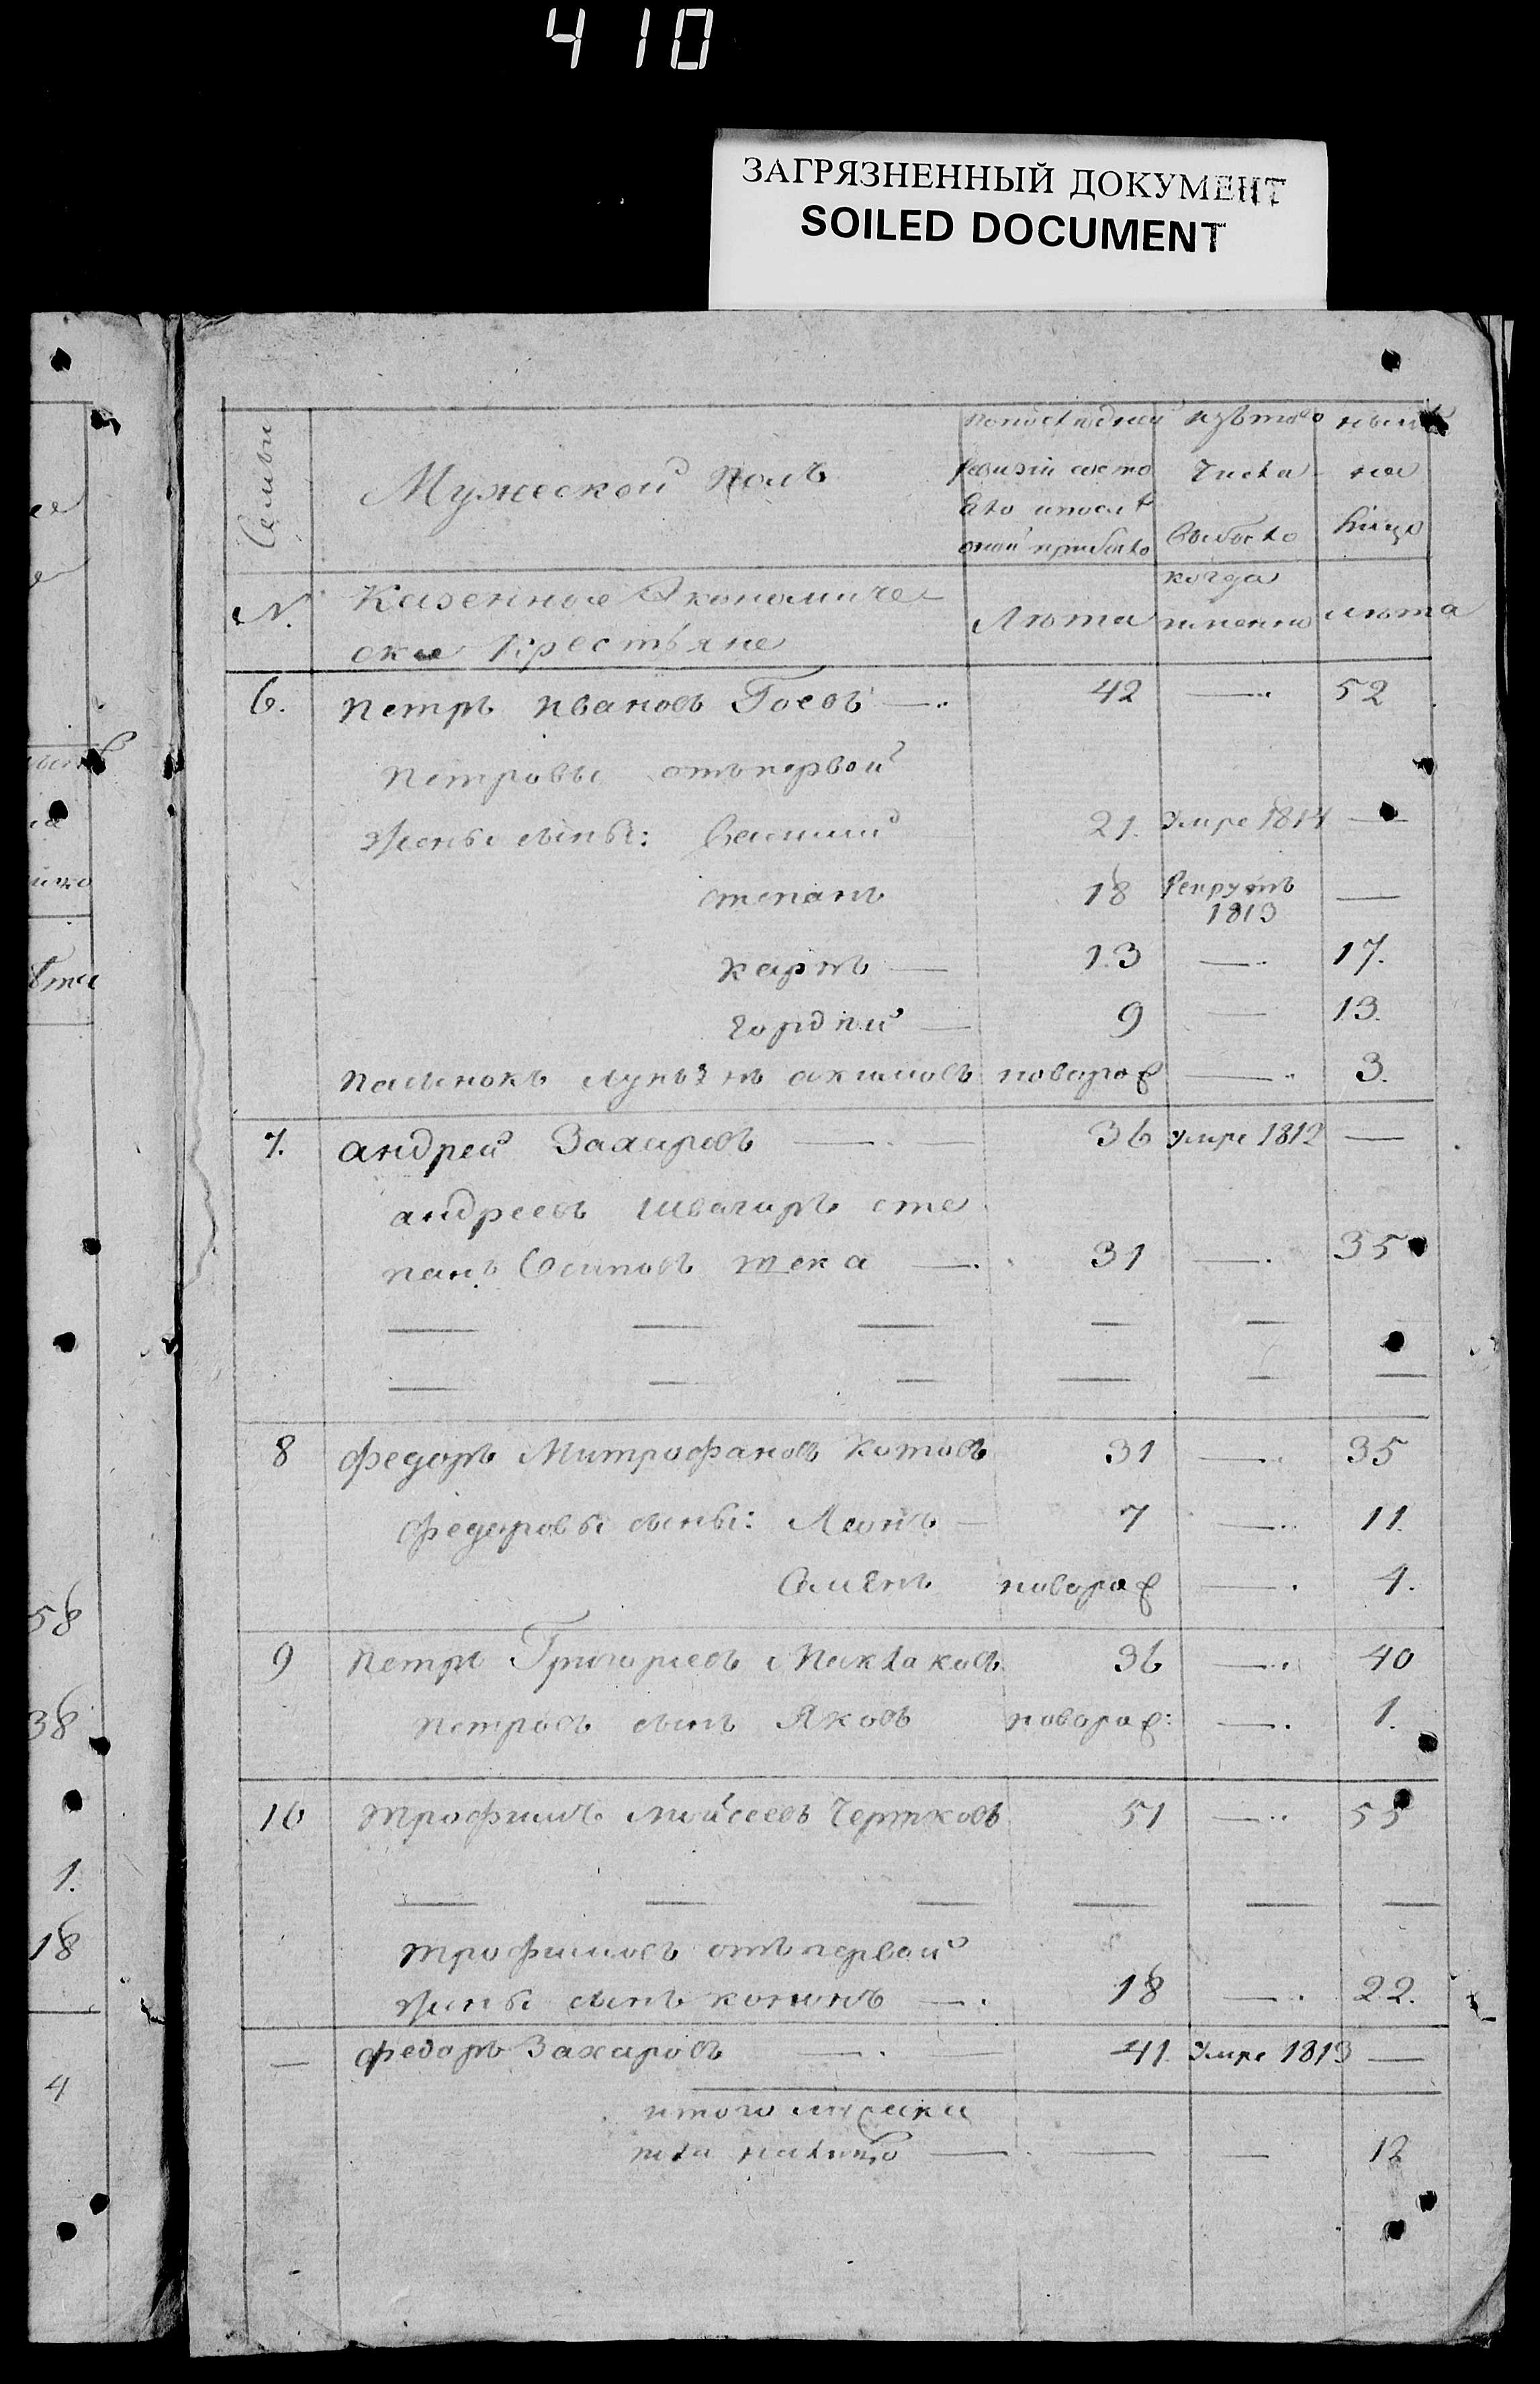 410
ЗАГРЯЗНЕННЫЙ ДОКУМЕНТ
SOILED DOCUMENT
Семьи
Мужеской полъ
попоследней
ревизіи состо
яло ипосле
оной прибыло
изътого
числа
выбыло
ныне
на
лицо
№.
Казенные Економиче
ские Крестьяне
Лѣта
когда
имянно
лѣта
6. Петръ Ивановъ Гоевъ 42 — 52
Петровы отъпервой
жены сыны: Василий 21. Умре 1814 —
степанъ 18 Рекрутъ 1813 —
карпъ — 13 — 17.
гордѣй — 9 — 13.
акимовъ новорож — 3.
7. андрей Захаровъ — 36 умре 1812 —
андреевъ швагиръ сте
панъ Осиповъ тека — 31 — 35
— — — — — —
— — — — — —
8 федоръ Митрофановъ Котовъ 31 — 35
федоровы сыны: Леонъ — 7 — 11.
Семенъ новорож — 4.
9 Петръ Григорьевъ Маклаковъ 36 — 40
петровъ сынъ Яковъ новорож: — 1.
10 Трофимъ Мойсеевъ Чертковъ 51 — 55
— — — — — —
трофимовъ отъпервой
жены сынъ кононъ — 18 — 22.
— федоръ Захаровъ — 41. Умре 1813 —
итого мужеска
пола налицо — — — 12
58
38
1.
18
4